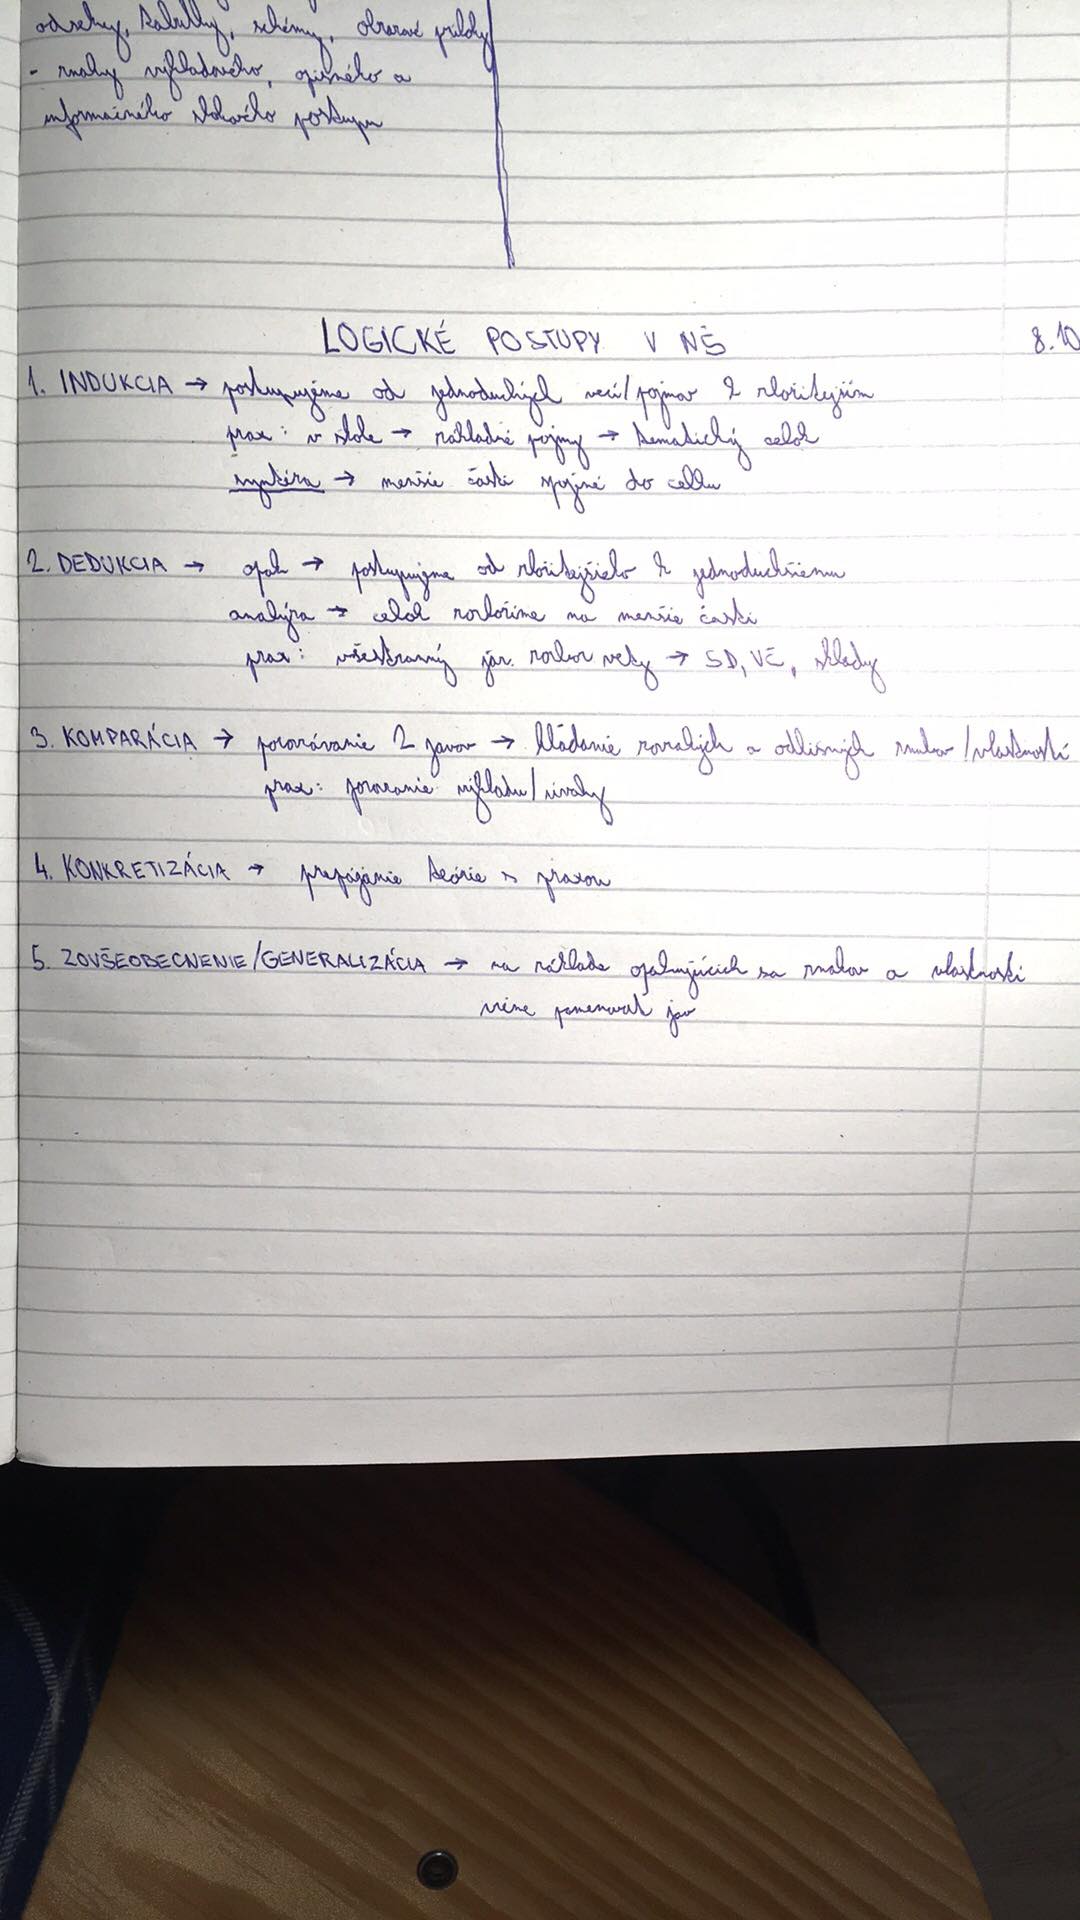 odseky, tabuľky, schémy, obrazové prílohy
- znaky výkladového, opisného a
informačného slohového postupu
LOGICKÉ POSTUPY V NŠ 8.10
1. INDUKCIA → postupujeme od jednoduchých vecí/pojmov k zložitejším
prax: v škole → základné pojmy → tematický celok
syntéza → menšie časti spojíme do celku
2. DEDUKCIA → opak → postupujeme od zložitejšieho k jednoduchšiemu
analýza → celok rozložíme na menšie časti
prax: všestranný jaz. rozbor vety → SD, VČ, sklady
3. KOMPARÁCIA → porovnávanie 2 javov → hľadanie rovnakých a odlišných znakov/vlastností
prax: porovnanie výkladu/úvahy
4. KONKRETIZÁCIA → prepájanie teórie s praxou
5. ZOVŠEOBECNENIE/GENERALIZÁCIA → na základe opakujúcich sa znakov a vlastností
vieme pomenovať jav